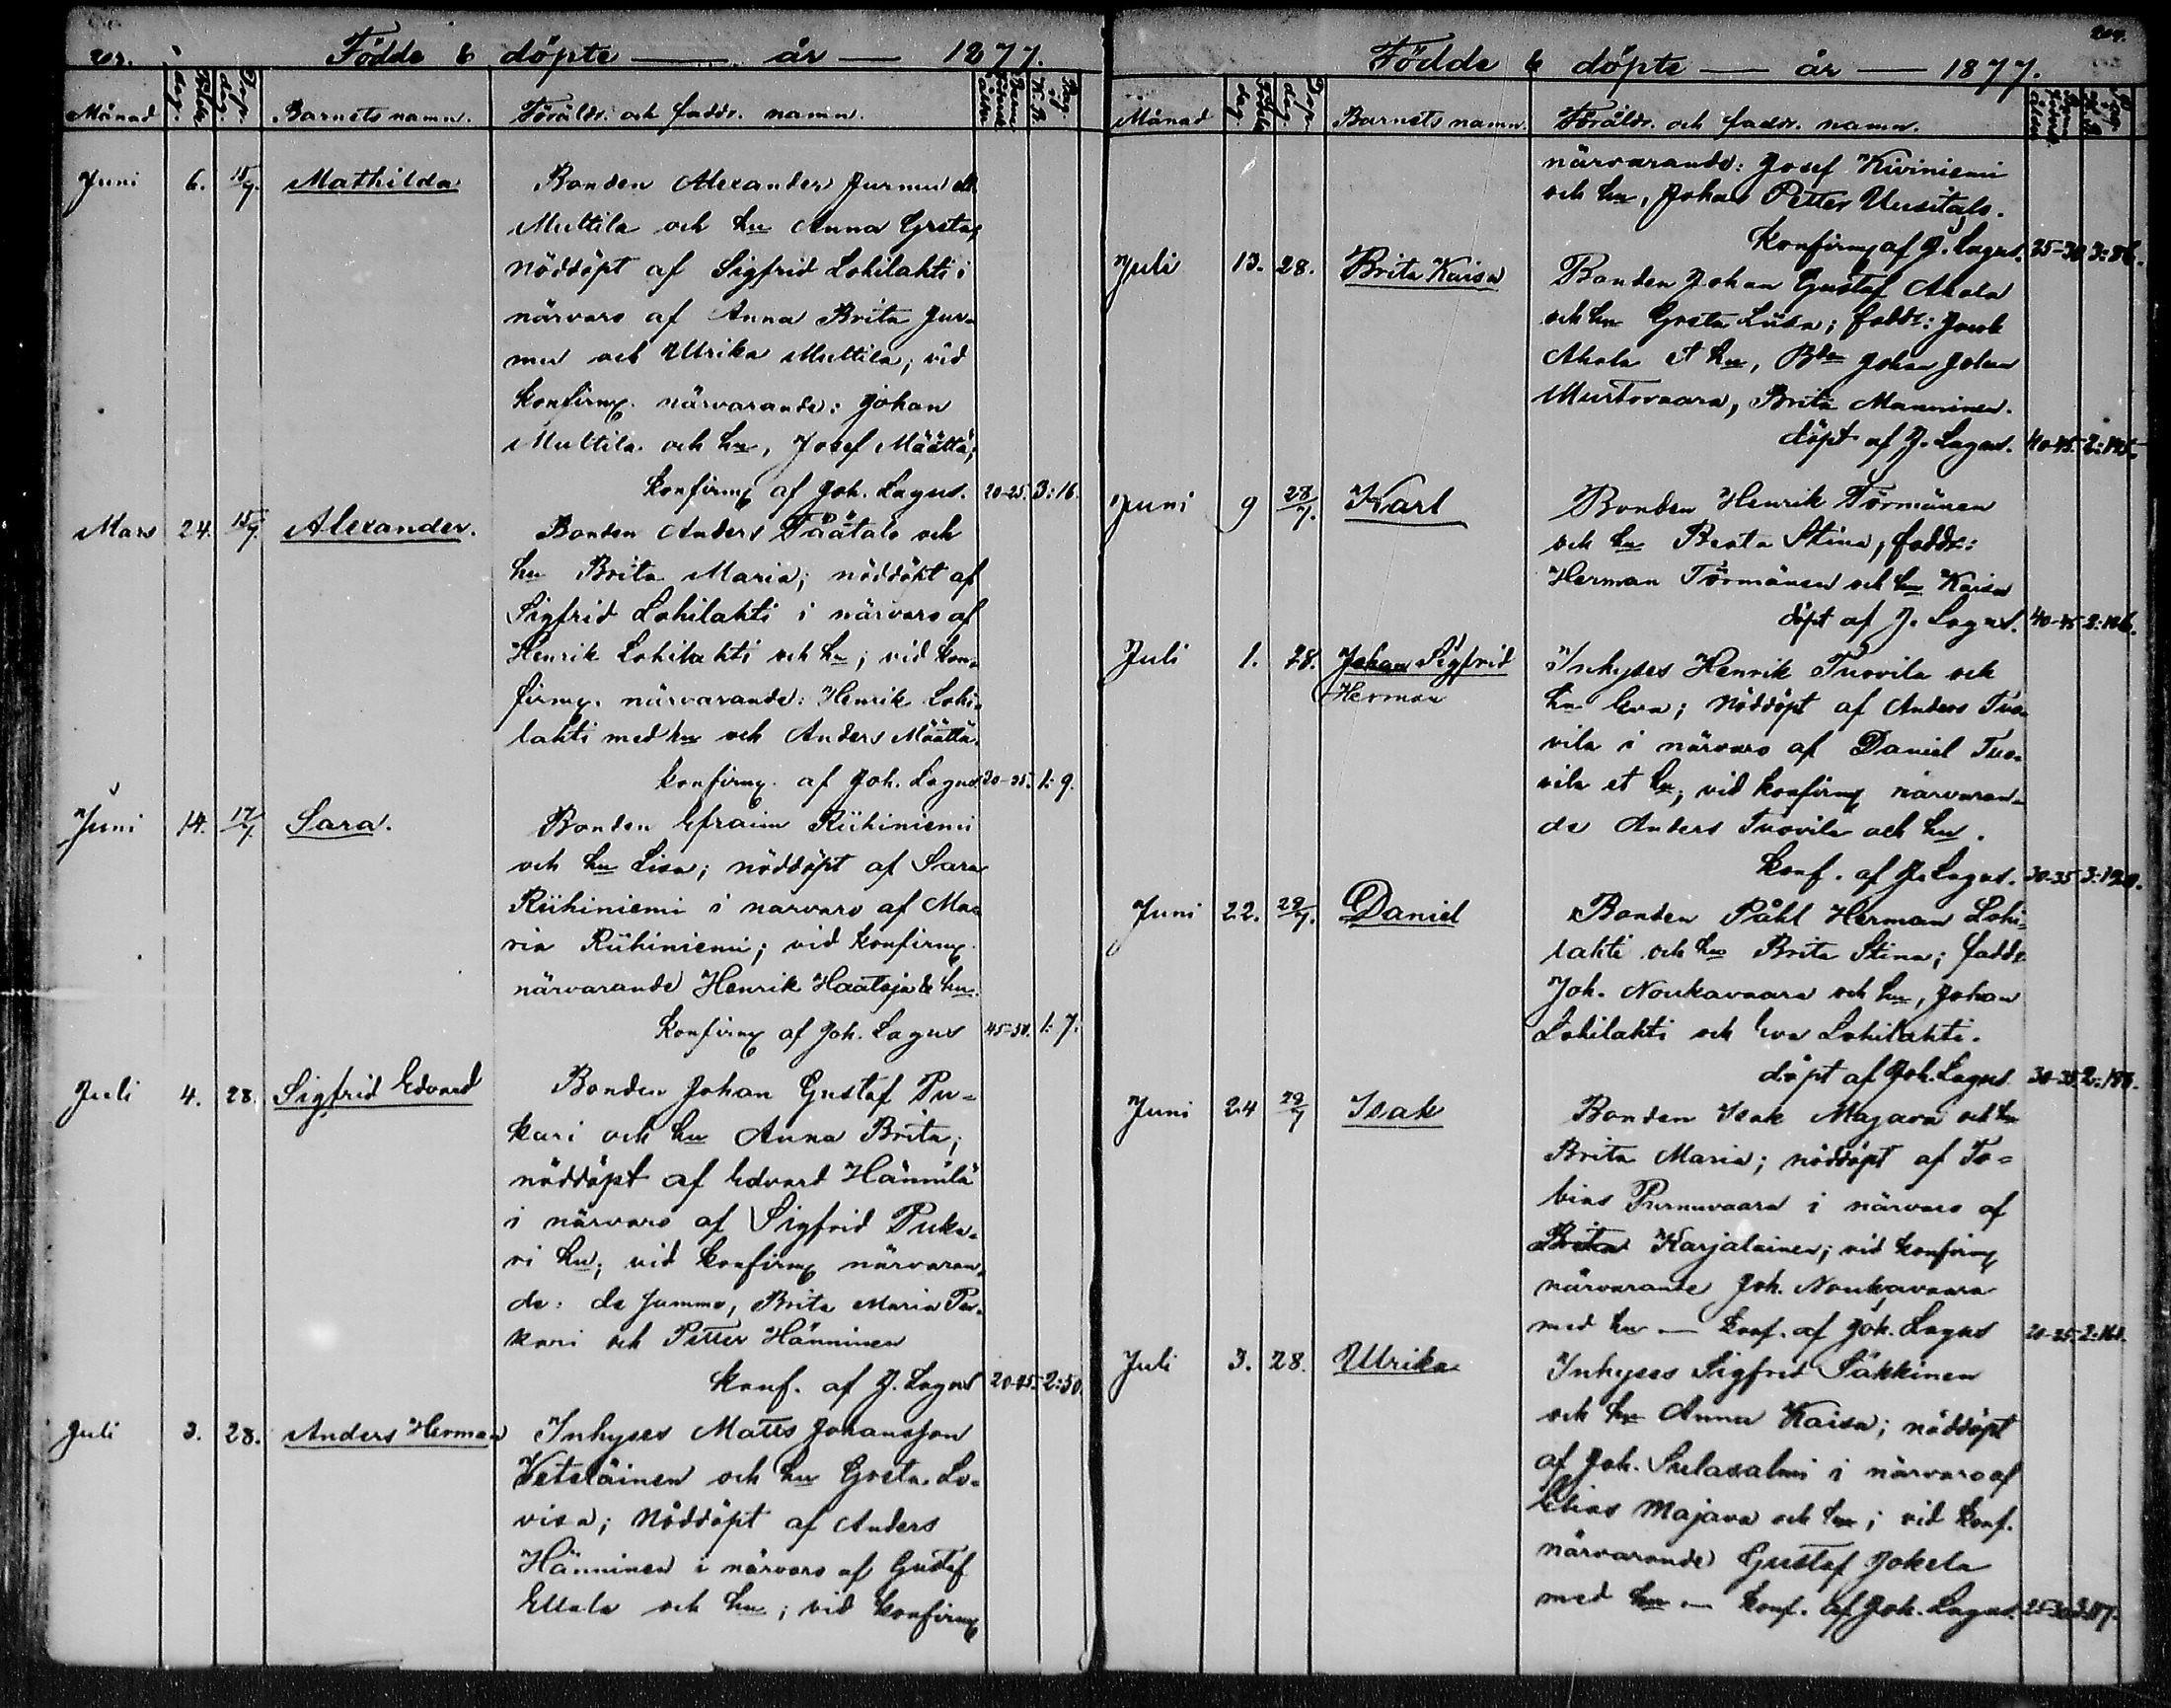 203.
Födde & döpte — år — 1877.
Månad Födelse dag. Dop. dag. Barnets namn. Föräldr. och faddr. namn.
Juni 6. 15/7. Mathilda Bonden Alexander Jurmu
Multila och hu Anna Greta,
nöddöpt af Sigfrid Lohilahti i
närvaro af Anna Brita Jur-
mu och Ulrika Multila; vid
konfirmg. närvarande: Johan
Multila och hu, Josef Määttä;
konfirmg af Joh. Lagus. 20-25. 3:16.
Mars 24. 15/7. Alexander. Bonden Anders Päätalo och
hu Brita Maria; nöddöpt af
Sigfrid Lohilahti i närvaro af
Henrik Lohilahti och hu; vid kon-
firmg. närvarande: Henrik Lohi-
lahti med hu och Anders Määttä.
konfirmg. af Joh. Lagus 30-35. 1:9.
Juni 14. 17/7. Sara. Bonden Efraim Riihiniemi
och hu Lisa; nöddöpt af Sara
Riihiniemi i narvaro af Ma-
ria Riihiniemi; vid konfirmg
närvarande Henrik Haataja & hu.
konfirmg af Joh. Lagus 45-50. 1:7.
Juli 4. 28. Sigfrid Edvard Bonden Johan Gustaf Pu-
kari och hu Anna Brita;
nöddöpt af Edvard Hännilä
i närvaro af Sigfrid Puka-
ri hu; vid konfirmg närvaran-
de: de samma, Brita Maria Pu-
kari och Petter Hänninen
konf. af J. Lagus 20-25. 2:50.
Juli 3. 28. Anders Herman Inhyses Matts Johansson
Keteläinen och hu Greta Lo-
visa; nöddöpt af Anders
Hänninen i närvaro af Gustaf
Ellala och hu; vid konfirmg
204.
Födde & döpte — år — 1877.
Månad Födelse dag. Dop. dag. Barnets namn. Föräldr. och faddr. namn.
närvarande: Josef Kiviniemi
och hu, Johan Petter Uusitalo.
konfirmg af J. Lagus. 25-30 3:86.
Juli 13. 28. Brita Kaisa Bonden Johan Gustaf Ahola
och hu Greta Liisa; faddr: Jacob
Ahola et hu, Bdn Johan Johan
Murtovaara, Brita Manninen.
döpt af J. Lagus. 40-45.
Juni 9 28/7. Karl Bonden Henrik Törmänen
och hu Beata Stina, faddr:
Herman Törmänen och hu Kaisa
döpt af J. Lagus. 40-45
Juli 1. 28. Johan Sigfrid Inhyses Henrik Tuovila och
Herman hu Eva; nöddöpt af Anders Tuo-
vila i närvaro af Daniel Tuo-
vila et hu; vid konfirmg närvaran-
de Anders Tuovila och hu.
konf. af J. Lagus. 30-35
Juni 22. 29/7. Daniel Bonden Påhl Herman Lohi-
lahti och hu Brita Stina; faddr
Joh. Noukavaara och hu, Johan
Lohilahti och Eva Lohilahti.
döpt af Joh. Lagus 30-35
Juni 24 29/7 Isak Bonden Isak Majava och hu
Brita Maria; nöddöpt af To-
bias Purnuvaara i närvaro af
Brita Karjalainen; vid konfirmg
närvarande Joh. Noukavaara
med hu — konf. af Joh. Lagus 20-25
Juli 3. 28. Ulrika Inhyses Sigfrid Säkkinen
och hu Anna Kaisa; nöddöpt
af Joh. Sulasalmi i närvaro af
Elias Majava och hu; vid konf.
närvarande Gustaf Jokela
med hu — konf. af Joh. Lagus. 25-30